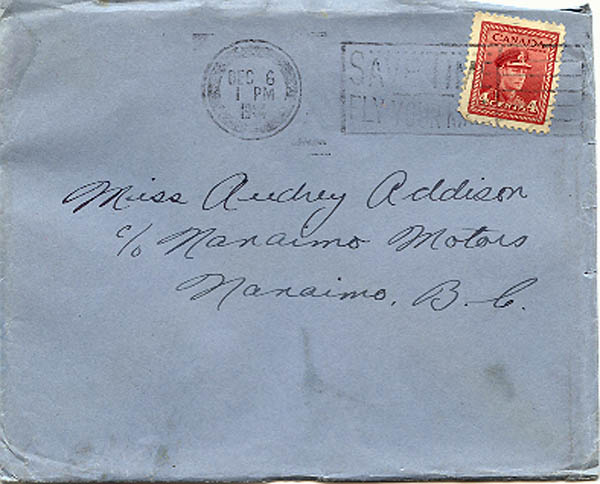 DEC 6
1 PM
SAVE TIME
FLY YOUR
CANADA
4 CENTS 4
Miss Audrey Addison
c/o Nanaimo Motors
Nanaimo, B.C.